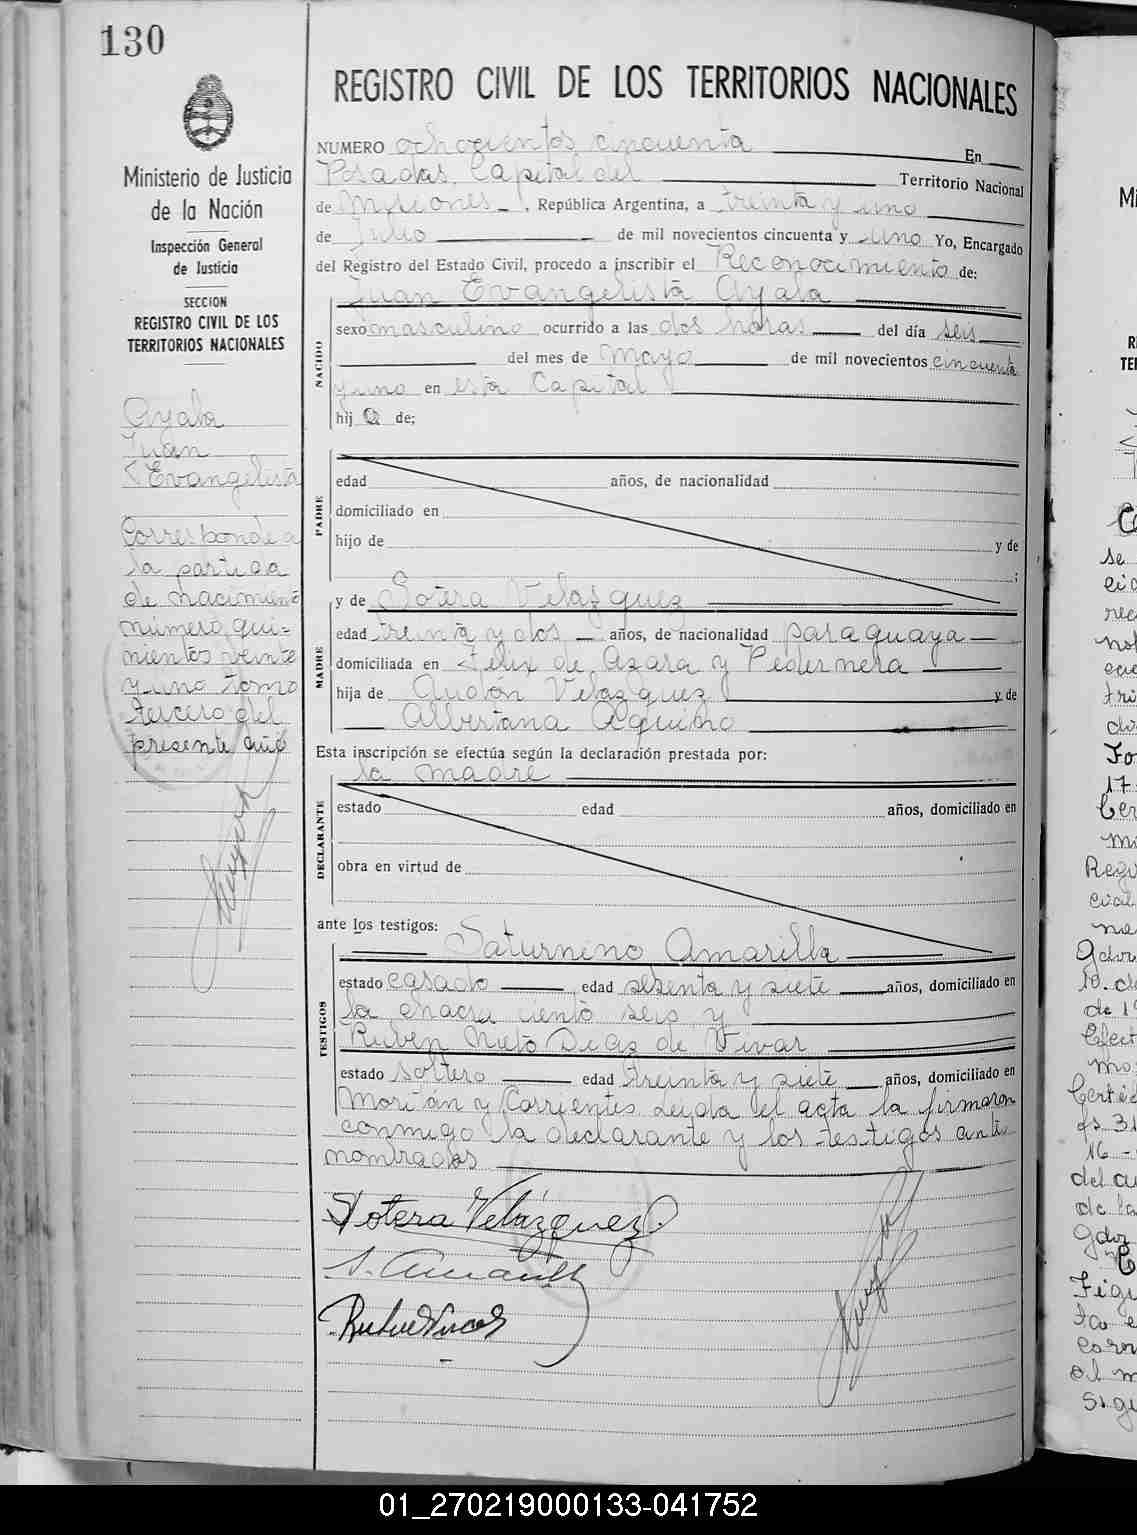 130
Ministerio de Justicia
de la Nación
Inspección General
de Justicia
SECCION
REGISTRO CIVIL DE LOS
TERRITORIOS NACIONALES
Ayala
Juan
Evangelista
Corresponde a
la partida
de nacimiento
número qui=
nientos veinte
y uno tomo
tercero del
presente año
REGISTRO CIVIL DE LOS TERRITORIOS NACIONALES
NUMERO ochocientos cincuenta En
Posadas, Capital del Territorio Nacional
de Misiones, República Argentina, a treinta y uno
de Julio de mil novecientos cincuenta y uno Yo, Encargado
del Registro del Estado Civil, procedo a inscribir el Reconocimiento de:
Juan Evangelista Ayala
NACIDO
sexo masculino ocurrido a las dos horas del día seis
del mes de Mayo de mil novecientos cincuenta
y uno en esta Capital
hijo de;
PADRE
edad años, de nacionalidad
domiciliado en
hijo de y de
;
y de Sotera Velazquez
MADRE
edad treinta y dos años, de nacionalidad paraguaya
domiciliada en Felix de Azara y Pedernera
hija de Velazquez y de
Albertana Aquino
Esta inscripción se efectúa según la declaración prestada por:
la madre
DECLARANTE
estado edad años, domiciliado en
obra en virtud de
ante los testigos:
Saturnino Amarilla
TESTIGOS
estado casado edad sesenta y siete años, domiciliado en
la chacra ciento seis y
Ruben Nieto Diaz de Vivar
estado soltero edad treinta y siete años, domiciliado en
y Corrientes. Leida el acta la firmaron
conmigo la declarante y los testigos ante
nombrados
Sotera Velázquez
S. Amarilla
01_270219000133-041752